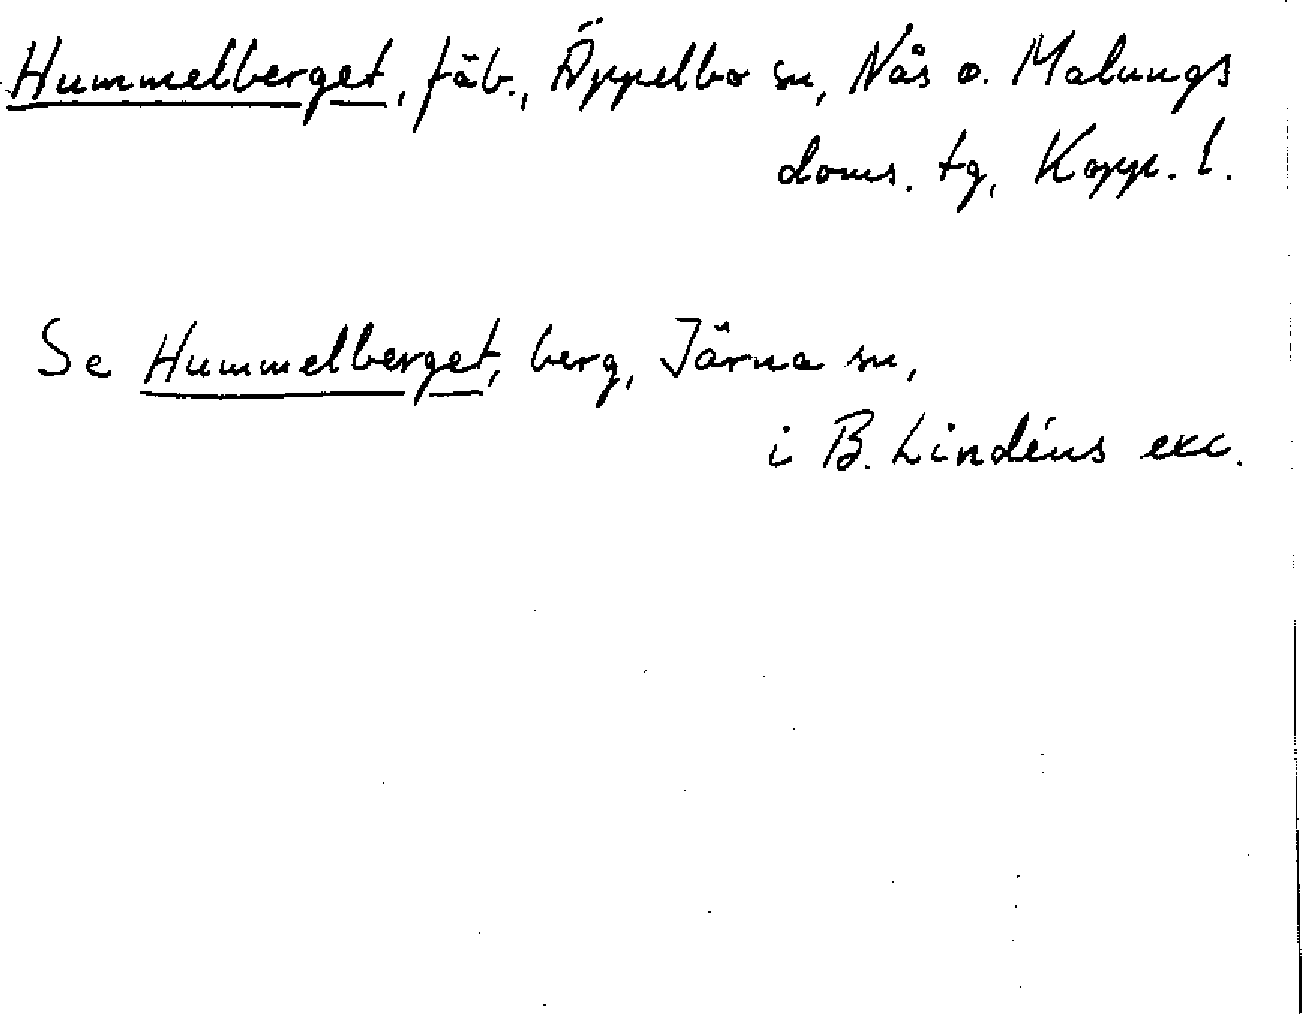 Hummelberget, fäb., Äppelbo sn, Nås o. Malungs
doms. tg, Kopp. l.
Se Hummelberget, berg, Järna sn,
i B. Lindéns exc.